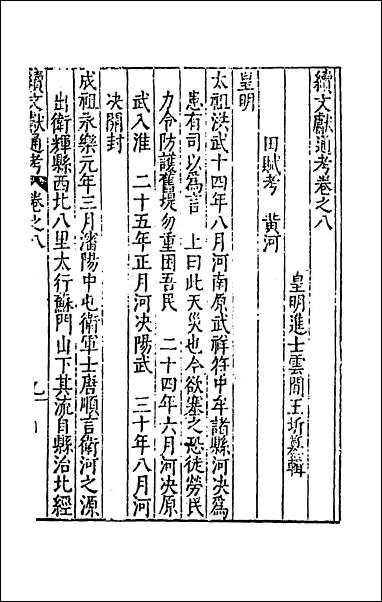 續文獻通考卷之八
皇明進士雲間王圻纂輯
田賦考　黄河
皇明
太祖洪武十四年八月河南原武祥符中牟諸縣河决爲
患有司以爲言　上曰此天災也今欲塞之恐徒勞民
力令防護舊堤勿重困吾民　二十四年六月河决原
武入淮　二十五年正月河决陽武　三十年八月河
决開封
成祖永樂元年三月瀋陽中屯衛軍士唐順言衛河之源
出衛輝縣西北八里太行蘇門山下其流自縣治北經
續文獻通考　卷之八